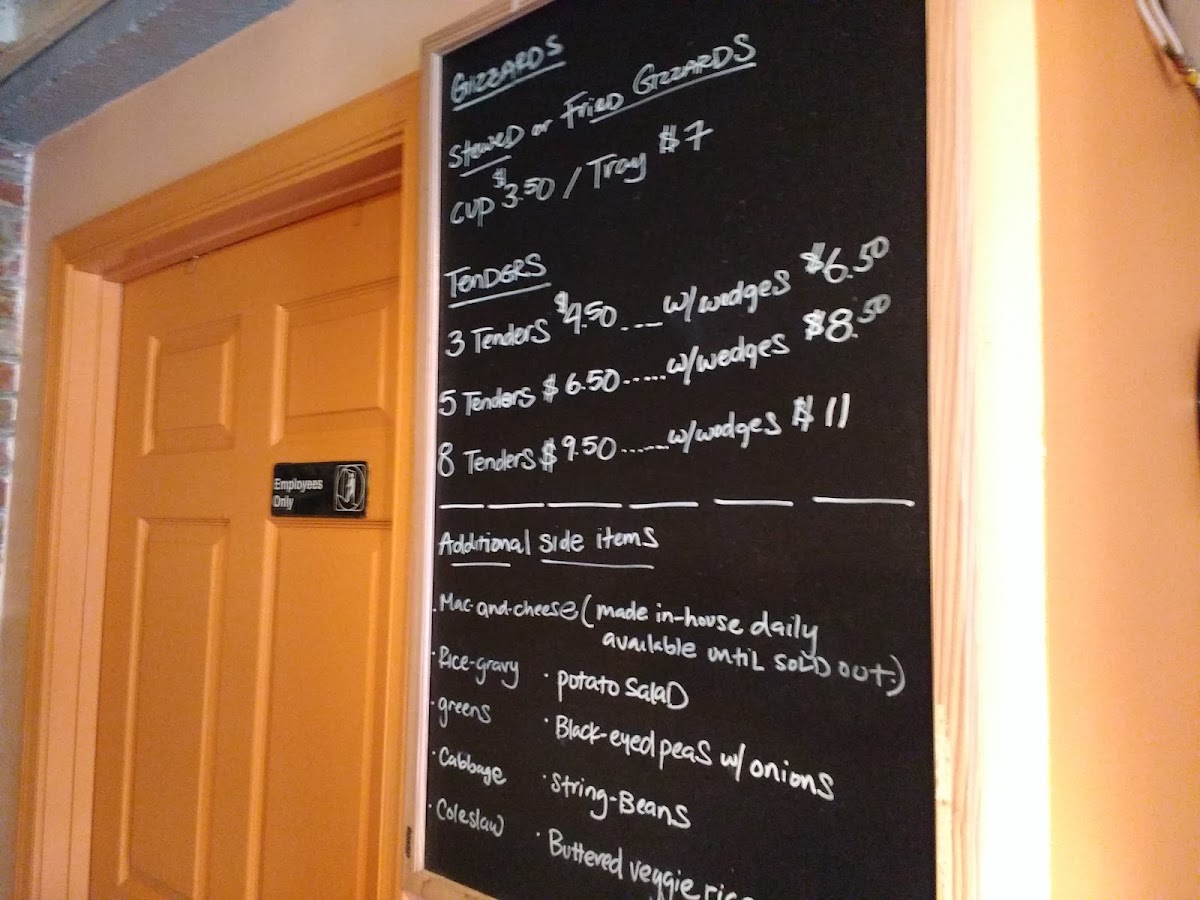 GIZZARDS
Stewed or Fried GIZZARDS
cup $3.50 / Tray $7
TENDERS
3 Tenders $4.50....w/wedges $6.50
5 Tenders $6.50.....w/wedges $8.50
8 Tenders $9.50......w/wedges $11
Additional side items
· Mac-and-cheese (made in-house daily
available until SOLD out.)
· Rice-gravy
· greens
· Cabbage
· Coleslaw
· potato salad
· Black-eyed peas w/ onions
· String-Beans
· Buttered veggie rice
Employees
Only